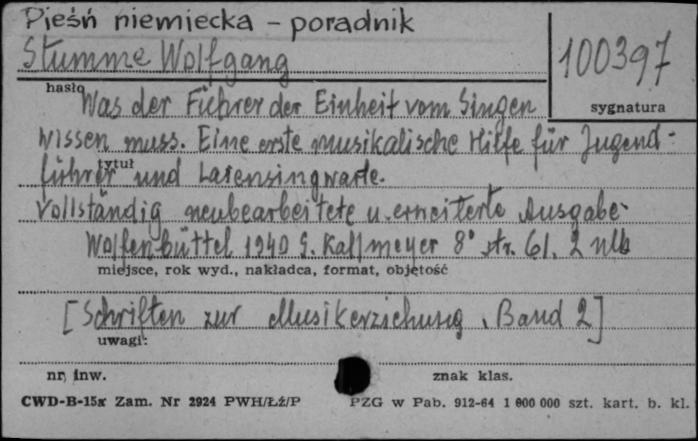 Pieśń niemiecka - poradnik
Stumme Wolfgang
100397
hasło
sygnatura
Was der Führer der Einheit vom Singen
wissen muss. Eine erste musikalische Hilfe für Jugend-
tytuł
führer und Laiensingwarte.
Vollständig neubearbeitete u. erweiterte Ausgabe.
Wolfenbüttel 1940 G. Kallmeyer 8° str. 61, 2 nlb
miejsce, rok wyd., nakładca, format, objętość
[Schriften zur Musikerziehung, Band 2]
uwagi:
nr inw.
znak klas.
CWD-B-15x Zam. Nr 2924 PWH/Łź/P
PZG w Pab. 912-64 1 000 000 szt. kart. b. kl.